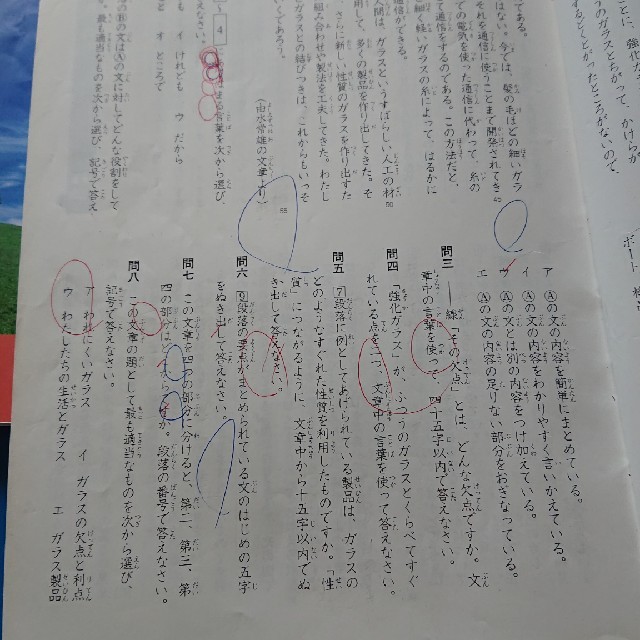 である。
はない。今では、髪の毛ほどの細いガラ
それを通信に使うことまで開発されてき
ての電気を使った通信に代わって、糸の
て通信をするのである。この方法だと、
細く軽いガラスの糸によって、はるかに
通信ができる。
人間は、ガラスというすばらしい人工の材
用して、多くの製品を作り出してきた。そ
さらに新しい性質のガラスを作り出すた
組み合わせや製法を工夫してきた。わたし
ガラスとの結びつきは、これからもいっそ
いくであろう。
(由水常雄の文章より)
4
る言葉を次から選び、
えなさい。
も イ けれども ウ だから
ど オ ところで
のⒷの文はⒶの文に対してどんな役割をして
。最も適当なものを次から選び、記号で答え
ア Ⓐの文の内容を簡単にまとめている。
イ Ⓐの文の内容をわかりやすく言いかえている。
ウ Ⓐの文とは別の内容をつけ加えている。
エ Ⓐの文の内容の足りない部分をおぎなっている。
問三 ――線「その欠点」とは、どんな欠点ですか。文
章中の言葉を使って、四十五字以内で答えなさい。
問四 「強化ガラス」が、ふつうのガラスとくらべてすぐ
れている点を二つ、文章中の言葉を使って答えなさい。
問五 7段落に例としてあげられている製品は、ガラスの
どのようなすぐれた性質を利用したものですか。「性
質」につながるように、文章中から十五字以内でぬ
き出して答えなさい。
問六 9段落の要点がまとめられている文のはじめの五字
をぬき出して答えなさい。
問七 この文章を四つの部分に分けると、第二、第三、第
四の部分はどこからですか。段落の番号で答えなさい。
問八 この文章の題として最も適当なものを次から選び、
記号で答えなさい。
ア われにくいガラス イ ガラスの欠点と利点
ウ わたしたちの生活とガラス エ ガラス製品